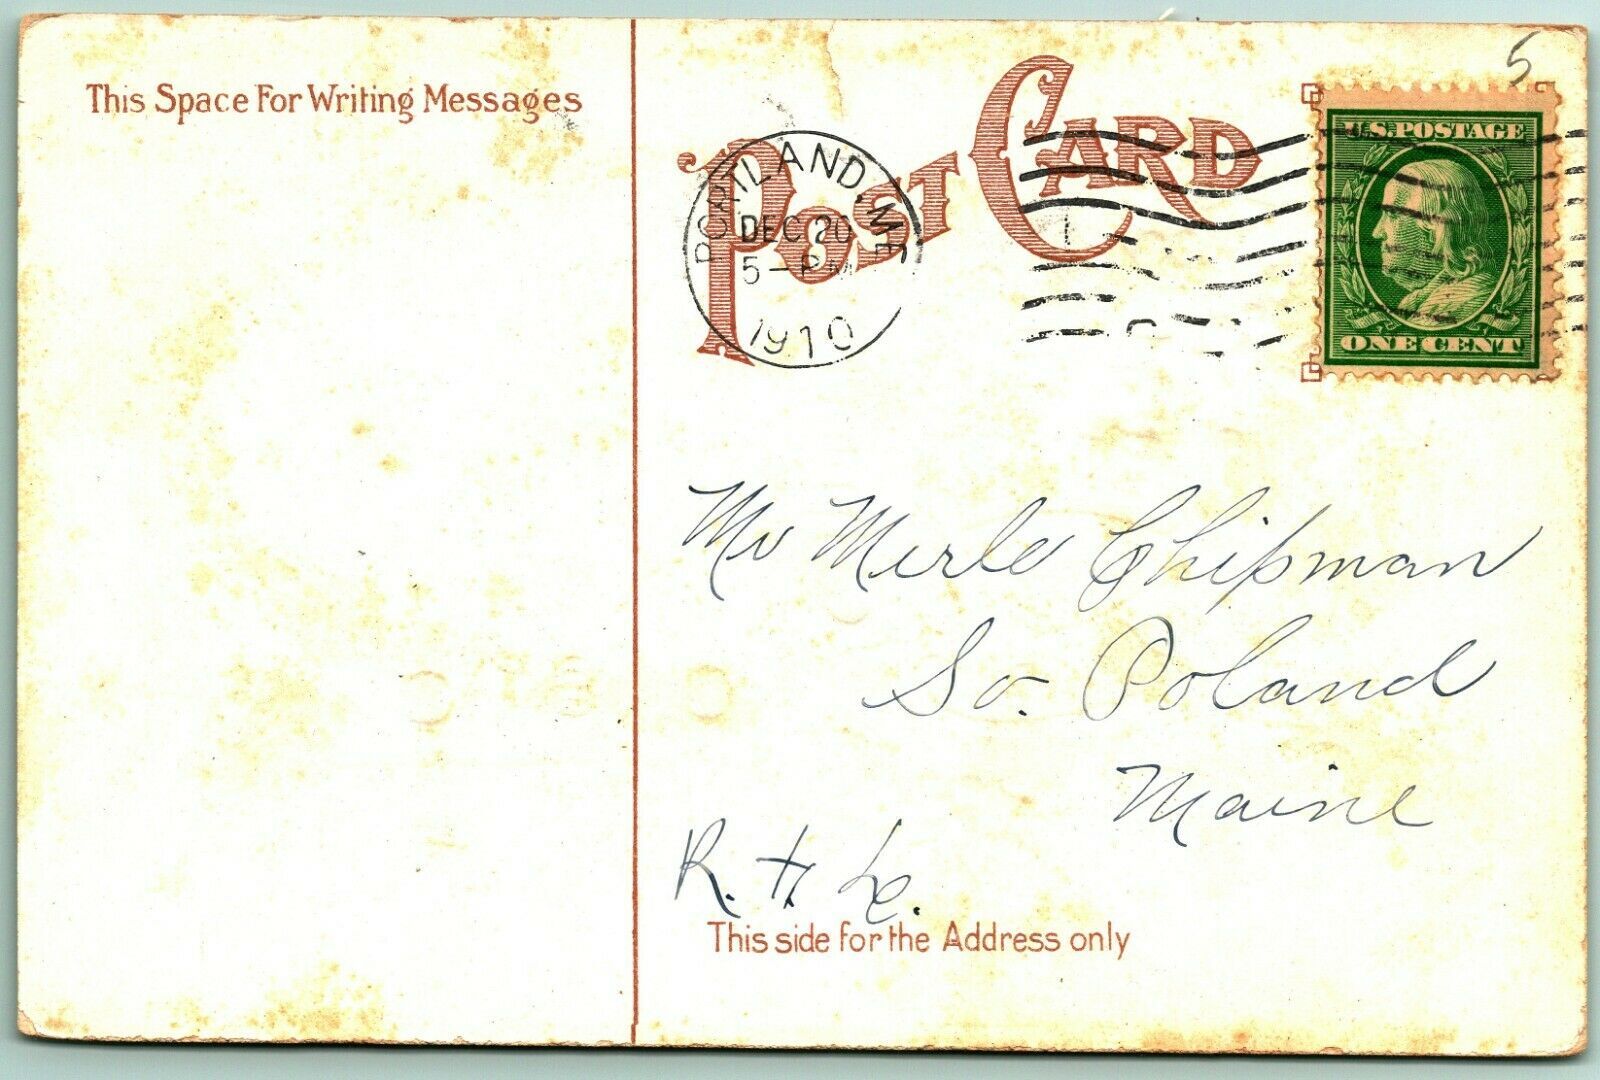 This Space For Writing Messages
POST CARD
PORTLAND, ME
DEC 20
5-PM
1910
5
U.S. POSTAGE
ONE CENT
Mr Merle Chipman
So. Poland
Maine
R. H.
This side for the Address only